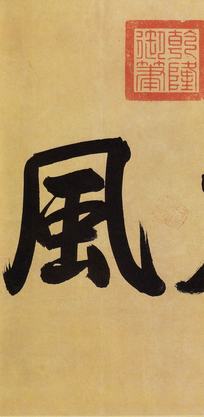 乾隆
御筆
風